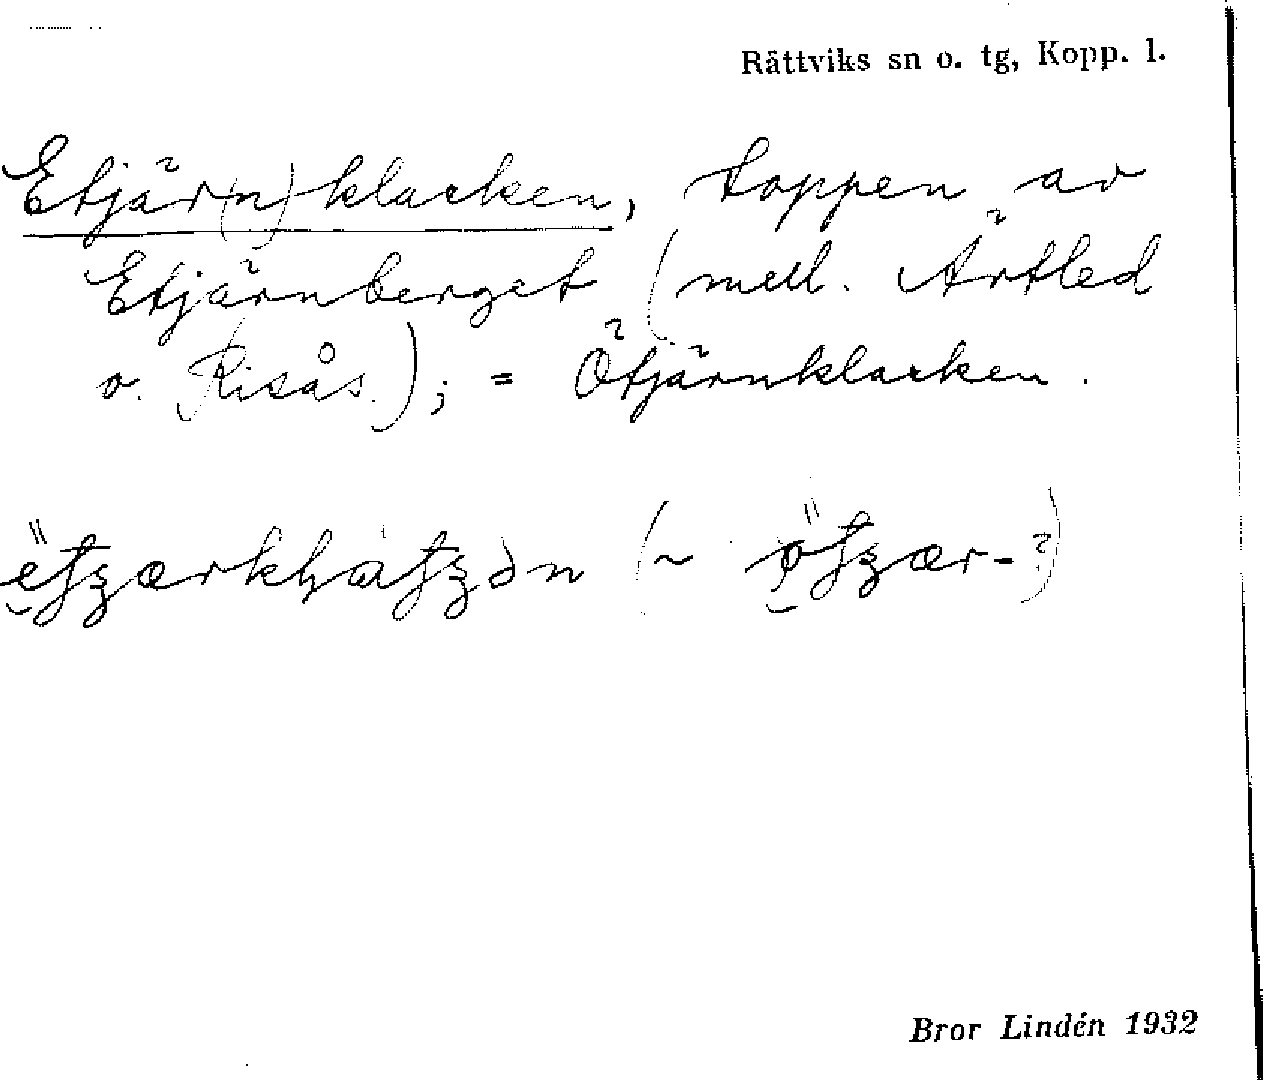 Rättviks sn o. tg, Kopp. l.
Etjär(n)klacken, toppen av
Etjärnberget (mell. Ärtled
o. Risås.); = Ötjärnklacken.
Bror Lindén 1932